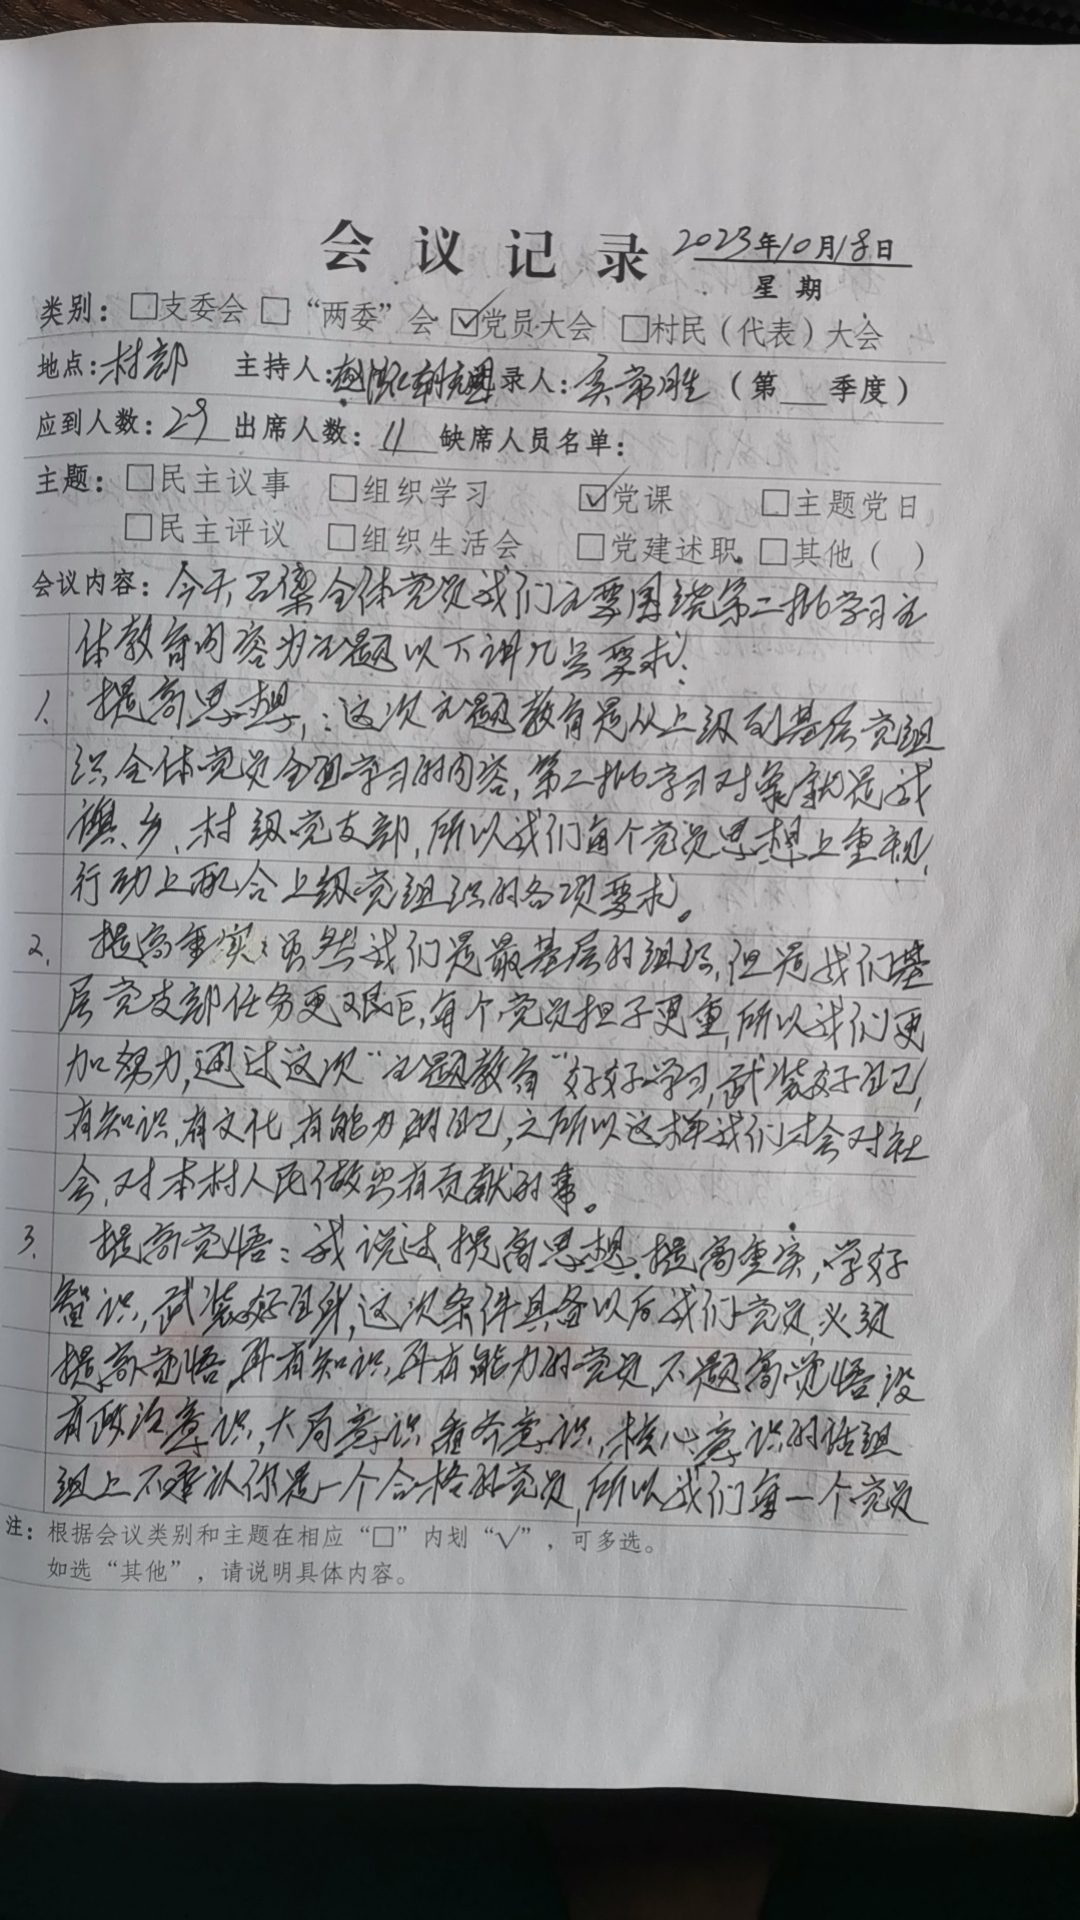 会议记录 2023年10月18日
星期
类别：□支委会 □“两委”会 ☑党员大会 □村民（代表）大会
地点：村部 主持人： 录人： 常胜（第 季度）
应到人数：29 出席人数：11 缺席人员名单：
主题：□民主议事 □组织学习 ☑党课 □主题党日
□民主评议 □组织生活会 □党建述职 □其他（ ）
会议内容：今天召集全体党员我们主要围绕第二批学习主
体教育内容为主题以下讲几点要求：
1. 提高思想：这次主题教育是从上级到基层党组
织全体党员全面学习的内容，第二批学习对象就是我
镇、乡、村级党支部，所以我们每个党员思想上重视，
行动上配合上级党组织的各项要求。
2. 提高重实：虽然我们是最基层的组织，但是我们基
层党支部任务更艰巨，每个党员担子更重，所以我们更
加努力，通过这次“主题教育”好好学习，武装好自己，
有知识，有文化，有能力的自己，之所以这样我们才会对社
会，对本村人民做出有贡献的事。
3. 提高觉悟：我说过提高思想，提高重实，学好
识，武装好自身，这次条件具备以后我们党员必须
提高觉悟，再有知识，再有能力的党员，不题高觉悟没
有政治意识，大局意识，看齐意识，核心意识的话组
组上不承认你是一个合格的党员，所以我们每一个党员
注：根据会议类别和主题在相应“□”内划“√”，可多选。
如选“其他”，请说明具体内容。